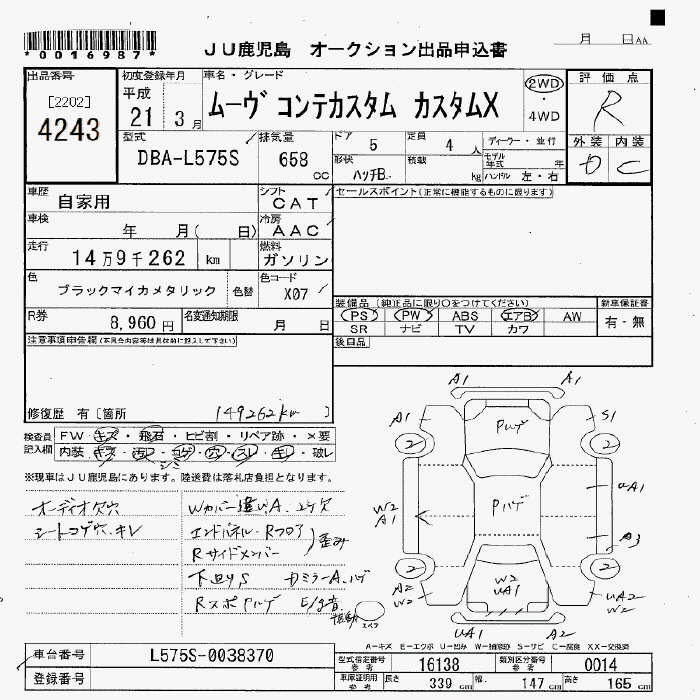 *0016987*
JU鹿児島 オークション出品申込書
月 日 AA
出品番号
[2202]
4243
初度登録年月
平成
21 3月
車名・グレード
ムーヴ コンテカスタム カスタムX
2WD
・
4WD
評価点
R
型式
DBA-L575S
排気量
658
cc
ドア 5
定員 4 人
ディーラー・並行
形状 ハッチB.
積載 kg
モデル年式 年
ハンドル 左・右
外装 内装
D C
車歴 自家用
シフト CAT
セールスポイント(正常に機能するものに限ります)
車検 年 月( 日)
冷房 AAC
走行 14万9千262 km
燃料 ガソリン
色 ブラックマイカメタリック 色替
色コード X07
装備品(純正品に限り〇をつけてください)
新車保証書
R券 8,960円
名変通知期限 月 日
PS PW ABS エアB AW
有・無
SR ナビ TV カワ
注意事項申告欄(不具合内容等は具体的に記入して下さい)
後日品
修復歴 有〔箇所 149262km 〕
検査員記入欄
FW・キズ・飛石・ヒビ割・リペア跡・×要
内装・キズ・汚レ・コゲ・穴・スレ・キレ・破レ
シミ
※現車はJU鹿児島にあります。陸送費は落札店負担となります。
オーディオ欠穴
シートコゲ穴.キレ
Wカバー違いA.コケ欠
エンドパネル.Rフロア
Rサイドメンバー
歪み
下廻りS Dミラー A.ハゲ
Rスポ Pハゲ E/g音.
A1 A1
A1 S1
Pハゲ
2 2
W2
A1
Pハゲ
uA1
A3
2 2
W2
uA1
A2
W2
uA2
W2
uA1 A2
スペア
A-キズ E-エクボ U-凹み W-補修跡 S-サビ C-腐食 XX-交換済
車台番号 L575S-0038370
型式指定番号 参考 16138
類別区分番号 参考 0014
登録番号
車庫証明用 参考 長さ 339 cm 幅・ 147 cm 高さ 165 cm